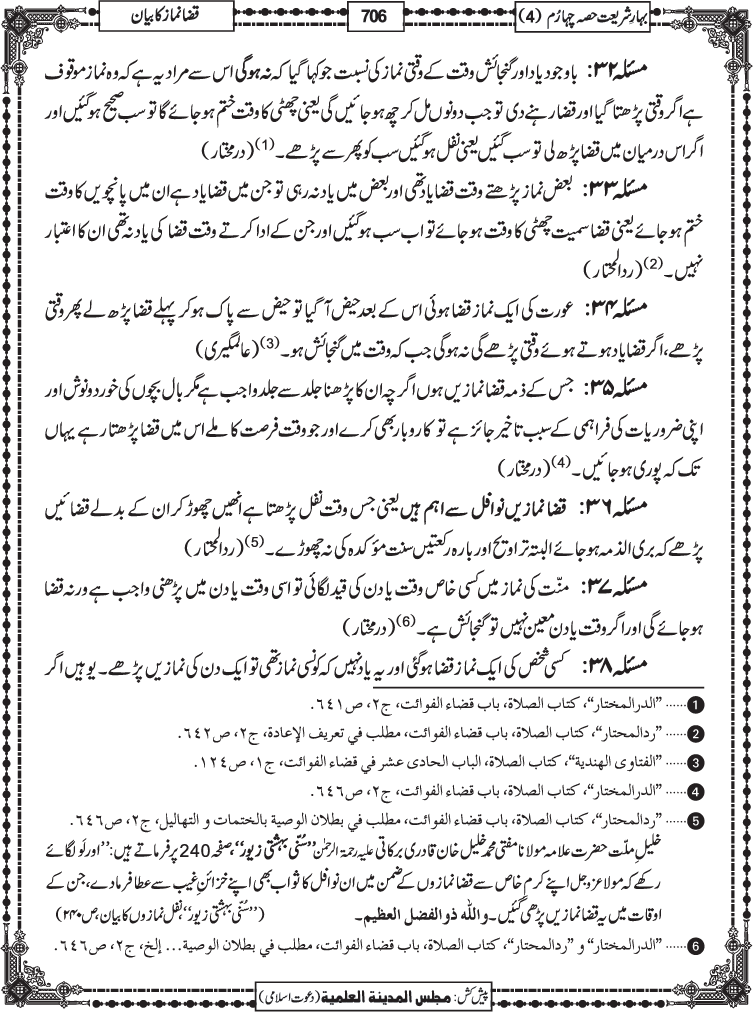 بہارِ شریعت حصہ چہارم (4)
706
قضا نماز کا بیان
مسئلہ ۳۲: باوجود یاد اور گنجائش وقت کے وقتی نماز کی نسبت جو کہا گیا کہ نہ ہوگی اس سے مراد یہ ہے کہ وہ نماز موقوف
ہے اگر وقتی پڑھتا گیا اور قضا رہنے دی تو جب دونوں مل کر چھ ہو جائیں گی یعنی چھٹی کا وقت ختم ہو جائے گا تو سب صحیح ہو گئیں اور
اگر اس درمیان میں قضا پڑھ لی تو سب گئیں یعنی نفل ہو گئیں سب کو پھر سے پڑھے۔ (1) (درمختار)
مسئلہ ۳۳: بعض نماز پڑھتے وقت قضا یاد تھی اور بعض میں یاد نہ رہی تو جن میں قضا یاد ہے ان میں پانچویں کا وقت
ختم ہو جائے یعنی قضا سمیت چھٹی کا وقت ہو جائے تو اب سب ہو گئیں اور جن کے ادا کرتے وقت قضا کی یاد نہ تھی ان کا اعتبار
نہیں۔ (2) (ردالمحتار)
مسئلہ ۳۴: عورت کی ایک نماز قضا ہوئی اس کے بعد حیض آگیا تو حیض سے پاک ہو کر پہلے قضا پڑھ لے پھر وقتی
پڑھے، اگر قضا یاد ہوتے ہوئے وقتی پڑھے گی نہ ہوگی جب کہ وقت میں گنجائش ہو۔ (3) (عالمگیری)
مسئلہ ۳۵: جس کے ذمہ قضا نمازیں ہوں اگرچہ ان کا پڑھنا جلد سے جلد واجب ہے مگر بال بچوں کی خورد و نوش اور
اپنی ضروریات کی فراہمی کے سبب تاخیر جائز ہے تو کاروبار بھی کرے اور جو وقت فرصت کا ملے اس میں قضا پڑھتا رہے یہاں
تک کہ پوری ہو جائیں۔ (4) (درمختار)
مسئلہ ۳۶: قضا نمازیں نوافل سے اہم ہیں یعنی جس وقت نفل پڑھتا ہے انھیں چھوڑ کر ان کے بدلے قضائیں
پڑھے کہ بری الذمہ ہو جائے البتہ تراویح اور بارہ رکعتیں سنت مؤکدہ کی نہ چھوڑے۔ (5) (ردالمحتار)
مسئلہ ۳۷: منّت کی نماز میں کسی خاص وقت یا دن کی قید لگائی تو اسی وقت یا دن میں پڑھنی واجب ہے ورنہ قضا
ہو جائے گی اور اگر وقت یا دن معین نہیں تو گنجائش ہے۔ (6) (درمختار)
مسئلہ ۳۸: کسی شخص کی ایک نماز قضا ہوگئی اور یہ یاد نہیں کہ کونسی نماز تھی تو ایک دن کی نمازیں پڑھے۔ یوہیں اگر
1 ...... "الدرالمختار"، کتاب الصلاة، باب قضاء الفوائت، ج٢، ص٦٤١.
2 ...... "ردالمحتار"، کتاب الصلاة، باب قضاء الفوائت، مطلب في تعریف الإعادة، ج٢، ص٦٤٢.
3 ...... "الفتاوی الهندیة"، کتاب الصلاة، الباب الحادی عشر في قضاء الفوائت، ج١، ص١٢٤.
4 ...... "الدرالمختار"، کتاب الصلاة، باب قضاء الفوائت، ج٢، ص٦٤٦.
5 ...... "ردالمحتار"، کتاب الصلاة، باب قضاء الفوائت، مطلب في بطلان الوصیة بالختمات و التهالیل، ج٢، ص٦٤٦.
خلیلِ ملّت حضرت علامہ مولانا مفتی محمد خلیل خان قادری برکاتی علیہ رحمۃ الرحمٰن "سُنّی بہشتی زیور"، صفحہ 240 پر فرماتے ہیں: "اور لَو لگائے
رکھے کہ مولا عزوجل اپنے کرمِ خاص سے قضا نمازوں کے ضمن میں ان نوافل کا ثواب بھی اپنے خزائنِ غیب سے عطا فرمادے، جن کے
اوقات میں یہ قضا نمازیں پڑھی گئیں۔ والله ذو الفضل العظیم۔ ("سُنّی بہشتی زیور"، نفل نمازوں کا بیان، ص۲۴۰)
6 ...... "الدرالمختار" و "ردالمحتار"، کتاب الصلاة، باب قضاء الفوائت، مطلب في بطلان الوصیة... إلخ، ج٢، ص٦٤٦.
پیش کش: مجلس المدینة العلمیة (دعوتِ اسلامی)